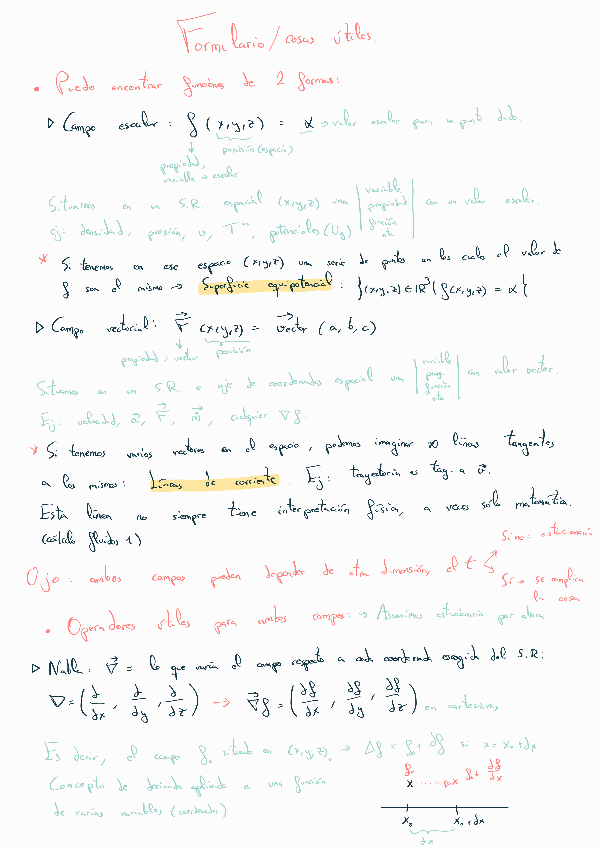 Formulario/cosas útiles.
• Puedo encontrar funciones de 2 formas:
▷ Campo escalar: f (x,y,z) = α → valor escalar para un punto dado.
posición (espacio)
propiedad,
variable → escalar
Situamos en un S.R. espacial (x,y,z) una | variable propiedad función etc | con un valor escalar.
ej: densidad, presión, v, Tª, potenciales (Ug)
* Si tenemos en ese espacio (x,y,z) una serie de puntos en los cuales el valor de
f sea el mismo → Superficie equipotencial: {(x,y,z) ∈ ℝ³ / f(x,y,z) = α}
▷ Campo vectorial: F⃗ (x,y,z) = vector (a, b, c)
propiedad = vector posición
Situamos en un S.R. o eje de coordenadas espacial una | variable prop. función etc | con valor vector.
Ej: velocidad, a⃗, F⃗, m⃗, cualquier ∇f.
* Si tenemos varios vectores en el espacio, podemos imaginar ∞ líneas tangentes
a los mismos: Líneas de corriente. Ej: trayectoria es tag. a v⃗.
Esta línea no siempre tiene interpretación física, a veces solo matemática.
(cálculo fluidos 1)
Ojo: ambos campos pueden depender de otra dimensión, el t
Si no: estacionario
Sí → se complica la cosa
• Operadores útiles para ambos campos: → Asumimos estacionario por ahora
▷ Nabla: ∇⃗ = lo que varía el campo respecto a cada coordenada escogida del S.R:
∇ = (∂/∂x, ∂/∂y, ∂/∂z) → ∇⃗f = (∂f/∂x, ∂f/∂y, ∂f/∂z) en cartesianas
Es decir, el campo f₀ situado en (x,y,z)₀ → Δf = f₀ + df si x = x₀ + dx
Concepto de derivada aplicado a una función
de varias variables (coordenadas)
f₀ x ······▷ x f₀ + ∂f/∂x
x₀ x₀ + dx
dx